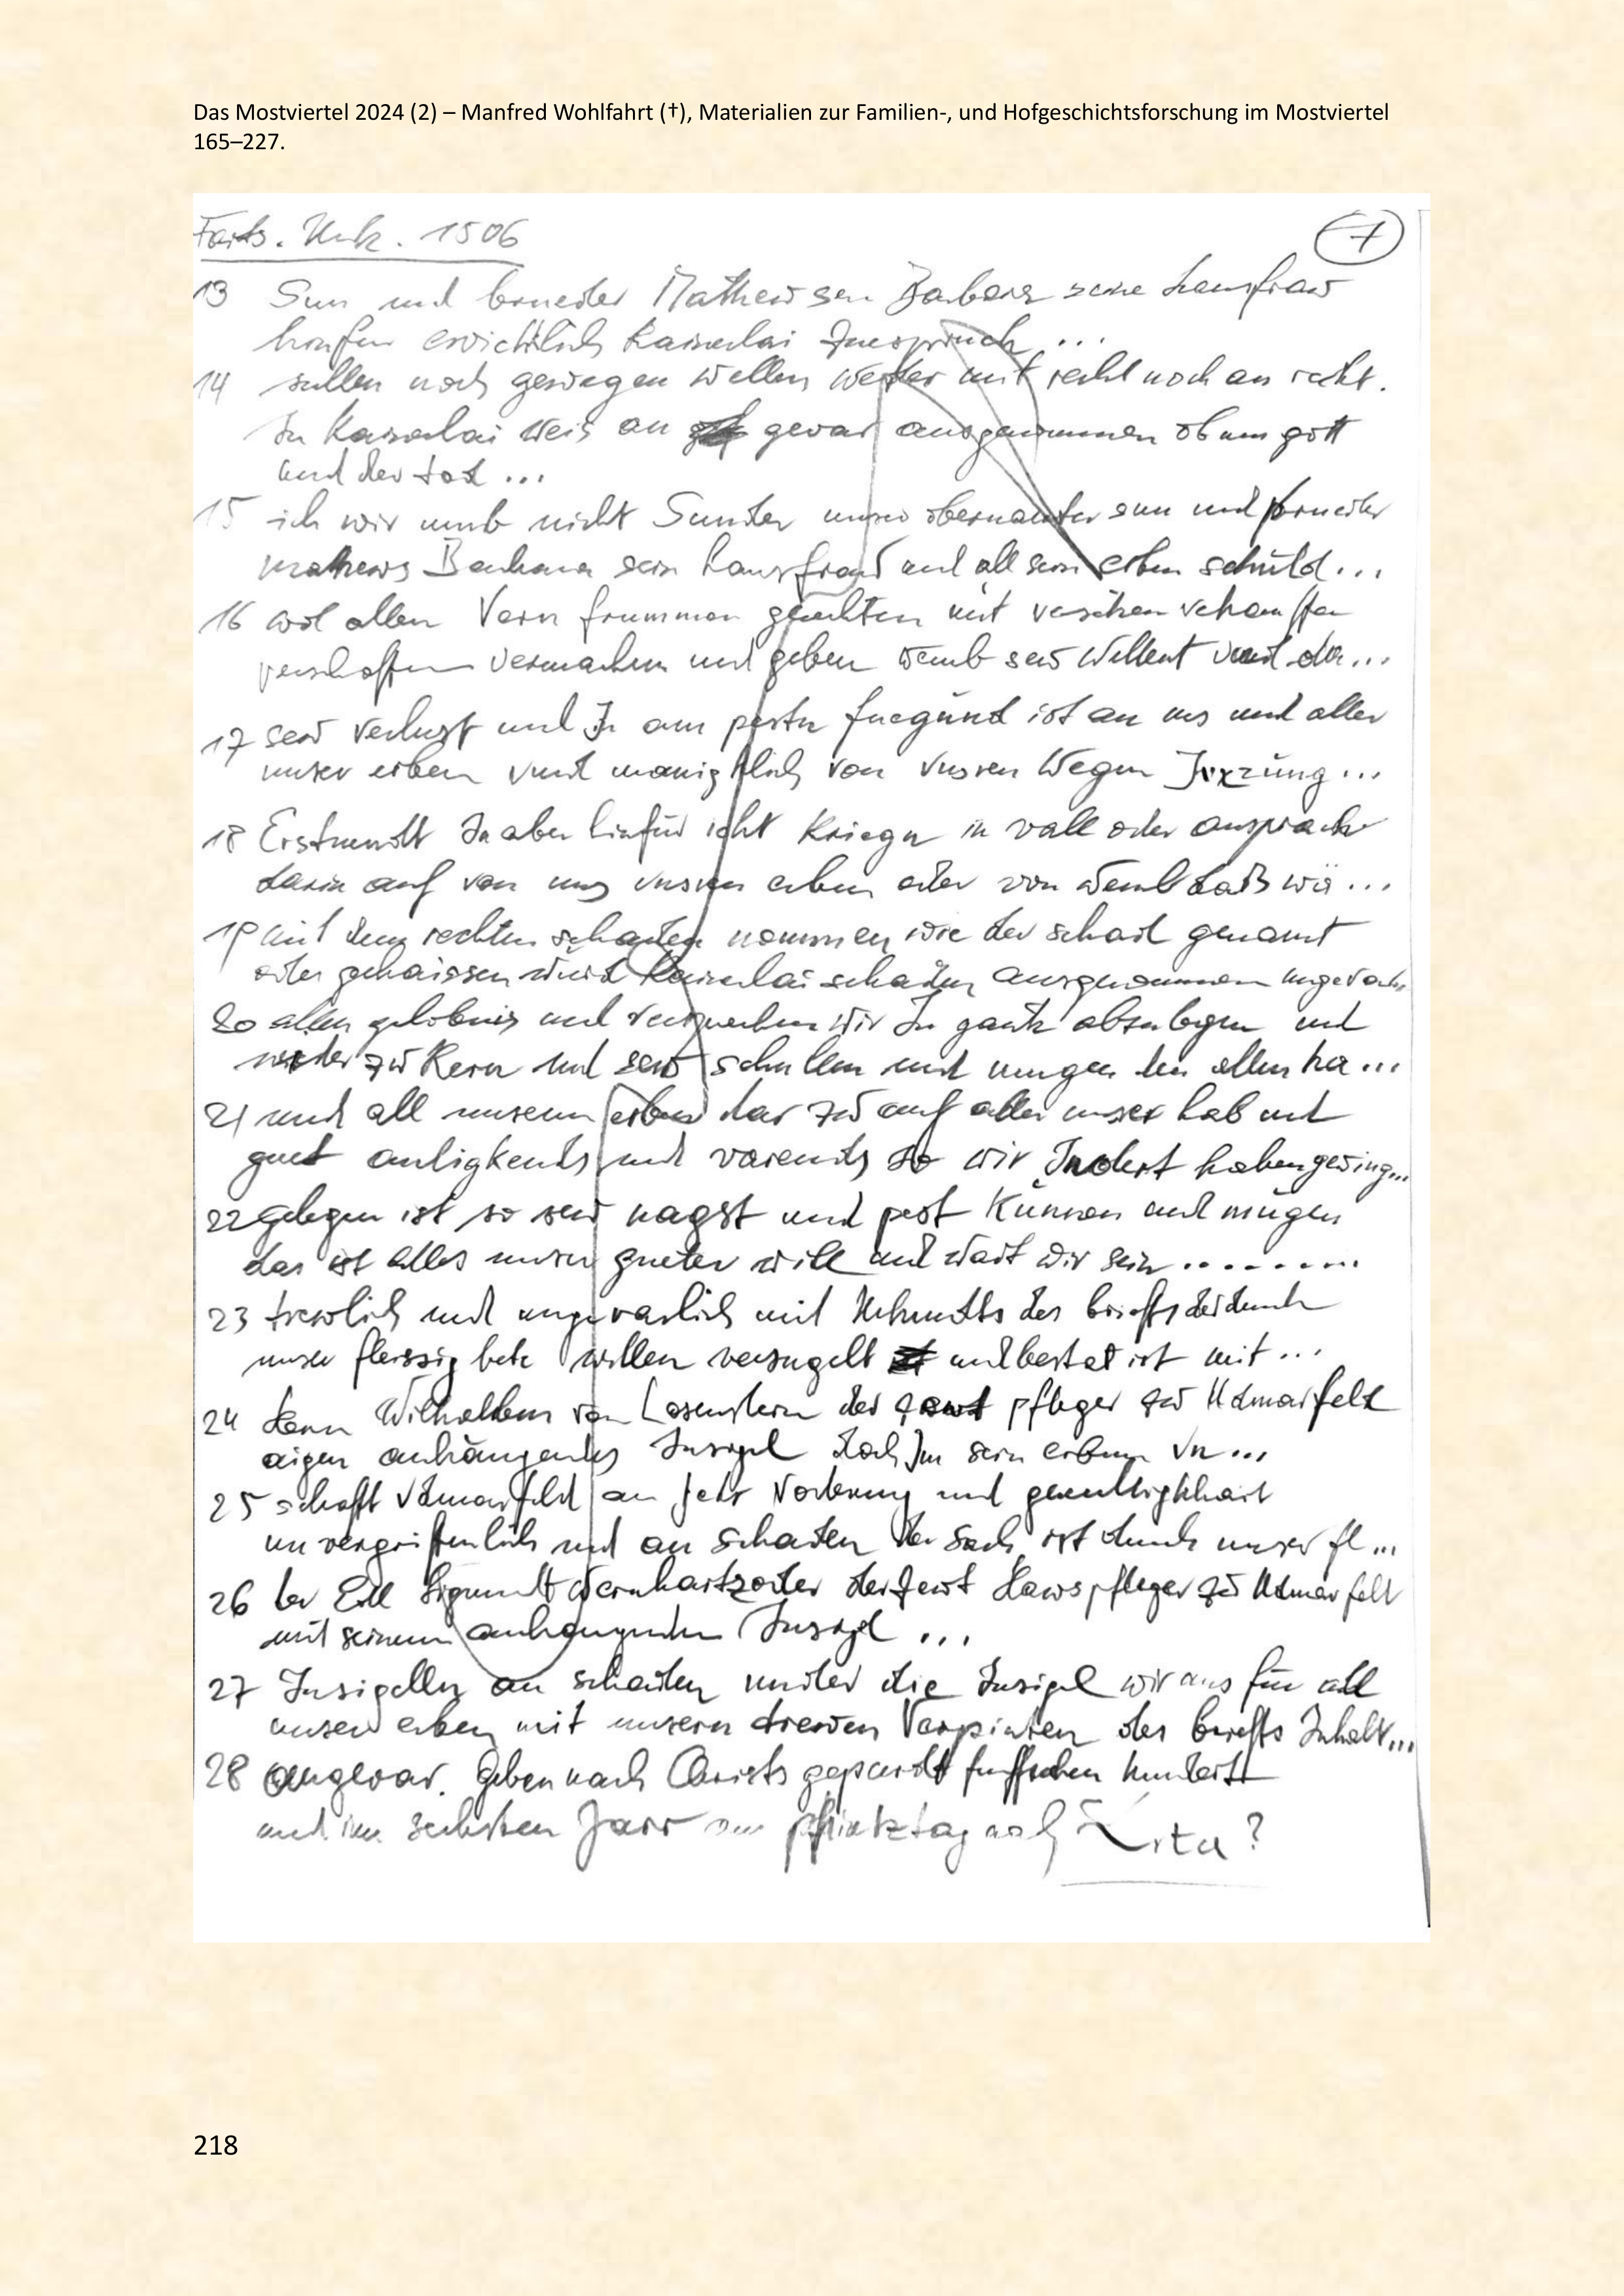 Das Mostviertel 2024 (2) – Manfred Wohlfahrt (†), Materialien zur Familien-, und Hofgeschichtsforschung im Mostviertel
165–227.
Forts. Urk. 1506
7
13 Sun und brueder Mathew sein Barbara seine hausfraw
kainerlai Zuespruch ...
14 sullen noch gewegen wellen weder mit recht noch an recht.
In kainerlai weis an gevar ausgenummen ob um gott
und der tod ...
15 ich wir umb nicht Sunder unser obernanter sun und brueder
mathews Barbara sein hausfraw und all sein erben schuld ...
16 wol allen Vern frummen mit
verschaffen vermachen und geben wemb sew wellent und der...
17 sew verlust und In am pesten fuegund ist an uns und aller
unser erben vnd manigklich von vnsren wegen Irrung ...
18 In aber hinfür icht kriegn in vall oder ansprach
darin auf von uns vnsren erben oder von wemb das wä ...
19 mit dem rechten schaden nommen wie der schad genamt
oder gehaissen wurd kainerlai schaden ausgenommen
20 allen gelobnis und wir In gantz abzulegen und
wider zu kern und sew schullen und mugen den allen ha ...
21 und all unsern erben dar zu auf aller unser hab und
guet anligkents und varends so wir Indert haben gewing...
22 gelegen ist so sew nagst und pest künnen und mügen
das ist alles unser gueter will und wart wir sein .........
23 trewlich und ungevarlich mit Urkundts des brieffs der durch
unser fleissig bete willen versigelt und bestet ist mit ...
24 Wilhalbm von Losenstein der pfleger zu Udmarfeld
aigen anhängendes Insigel doch Im sein erben vn...
25 schafft Vdmarfeld an Jehr Vordrung und
unvergriffenlich und an schaden der sach ist durch unser fl...
26 der Edl Sigmundt derzeit Hawspfleger zu Udmarfelt
mit seinem anhangunden Insigl ...
27 Insigelln an schaden under die Insigel wir uns für all
unser erben mit unsern trewen Verpinten des brieffs Inhalt...
28 ongevar. Geben nach Christs gepurdt funffzehen hundert
und im sechsten Jarr am phinkztag nach Zita?
218